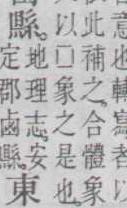 意也轉寫者以
此補之。合體象
以囗象之是也。
縣。地理志。安
定郡鹵縣。東